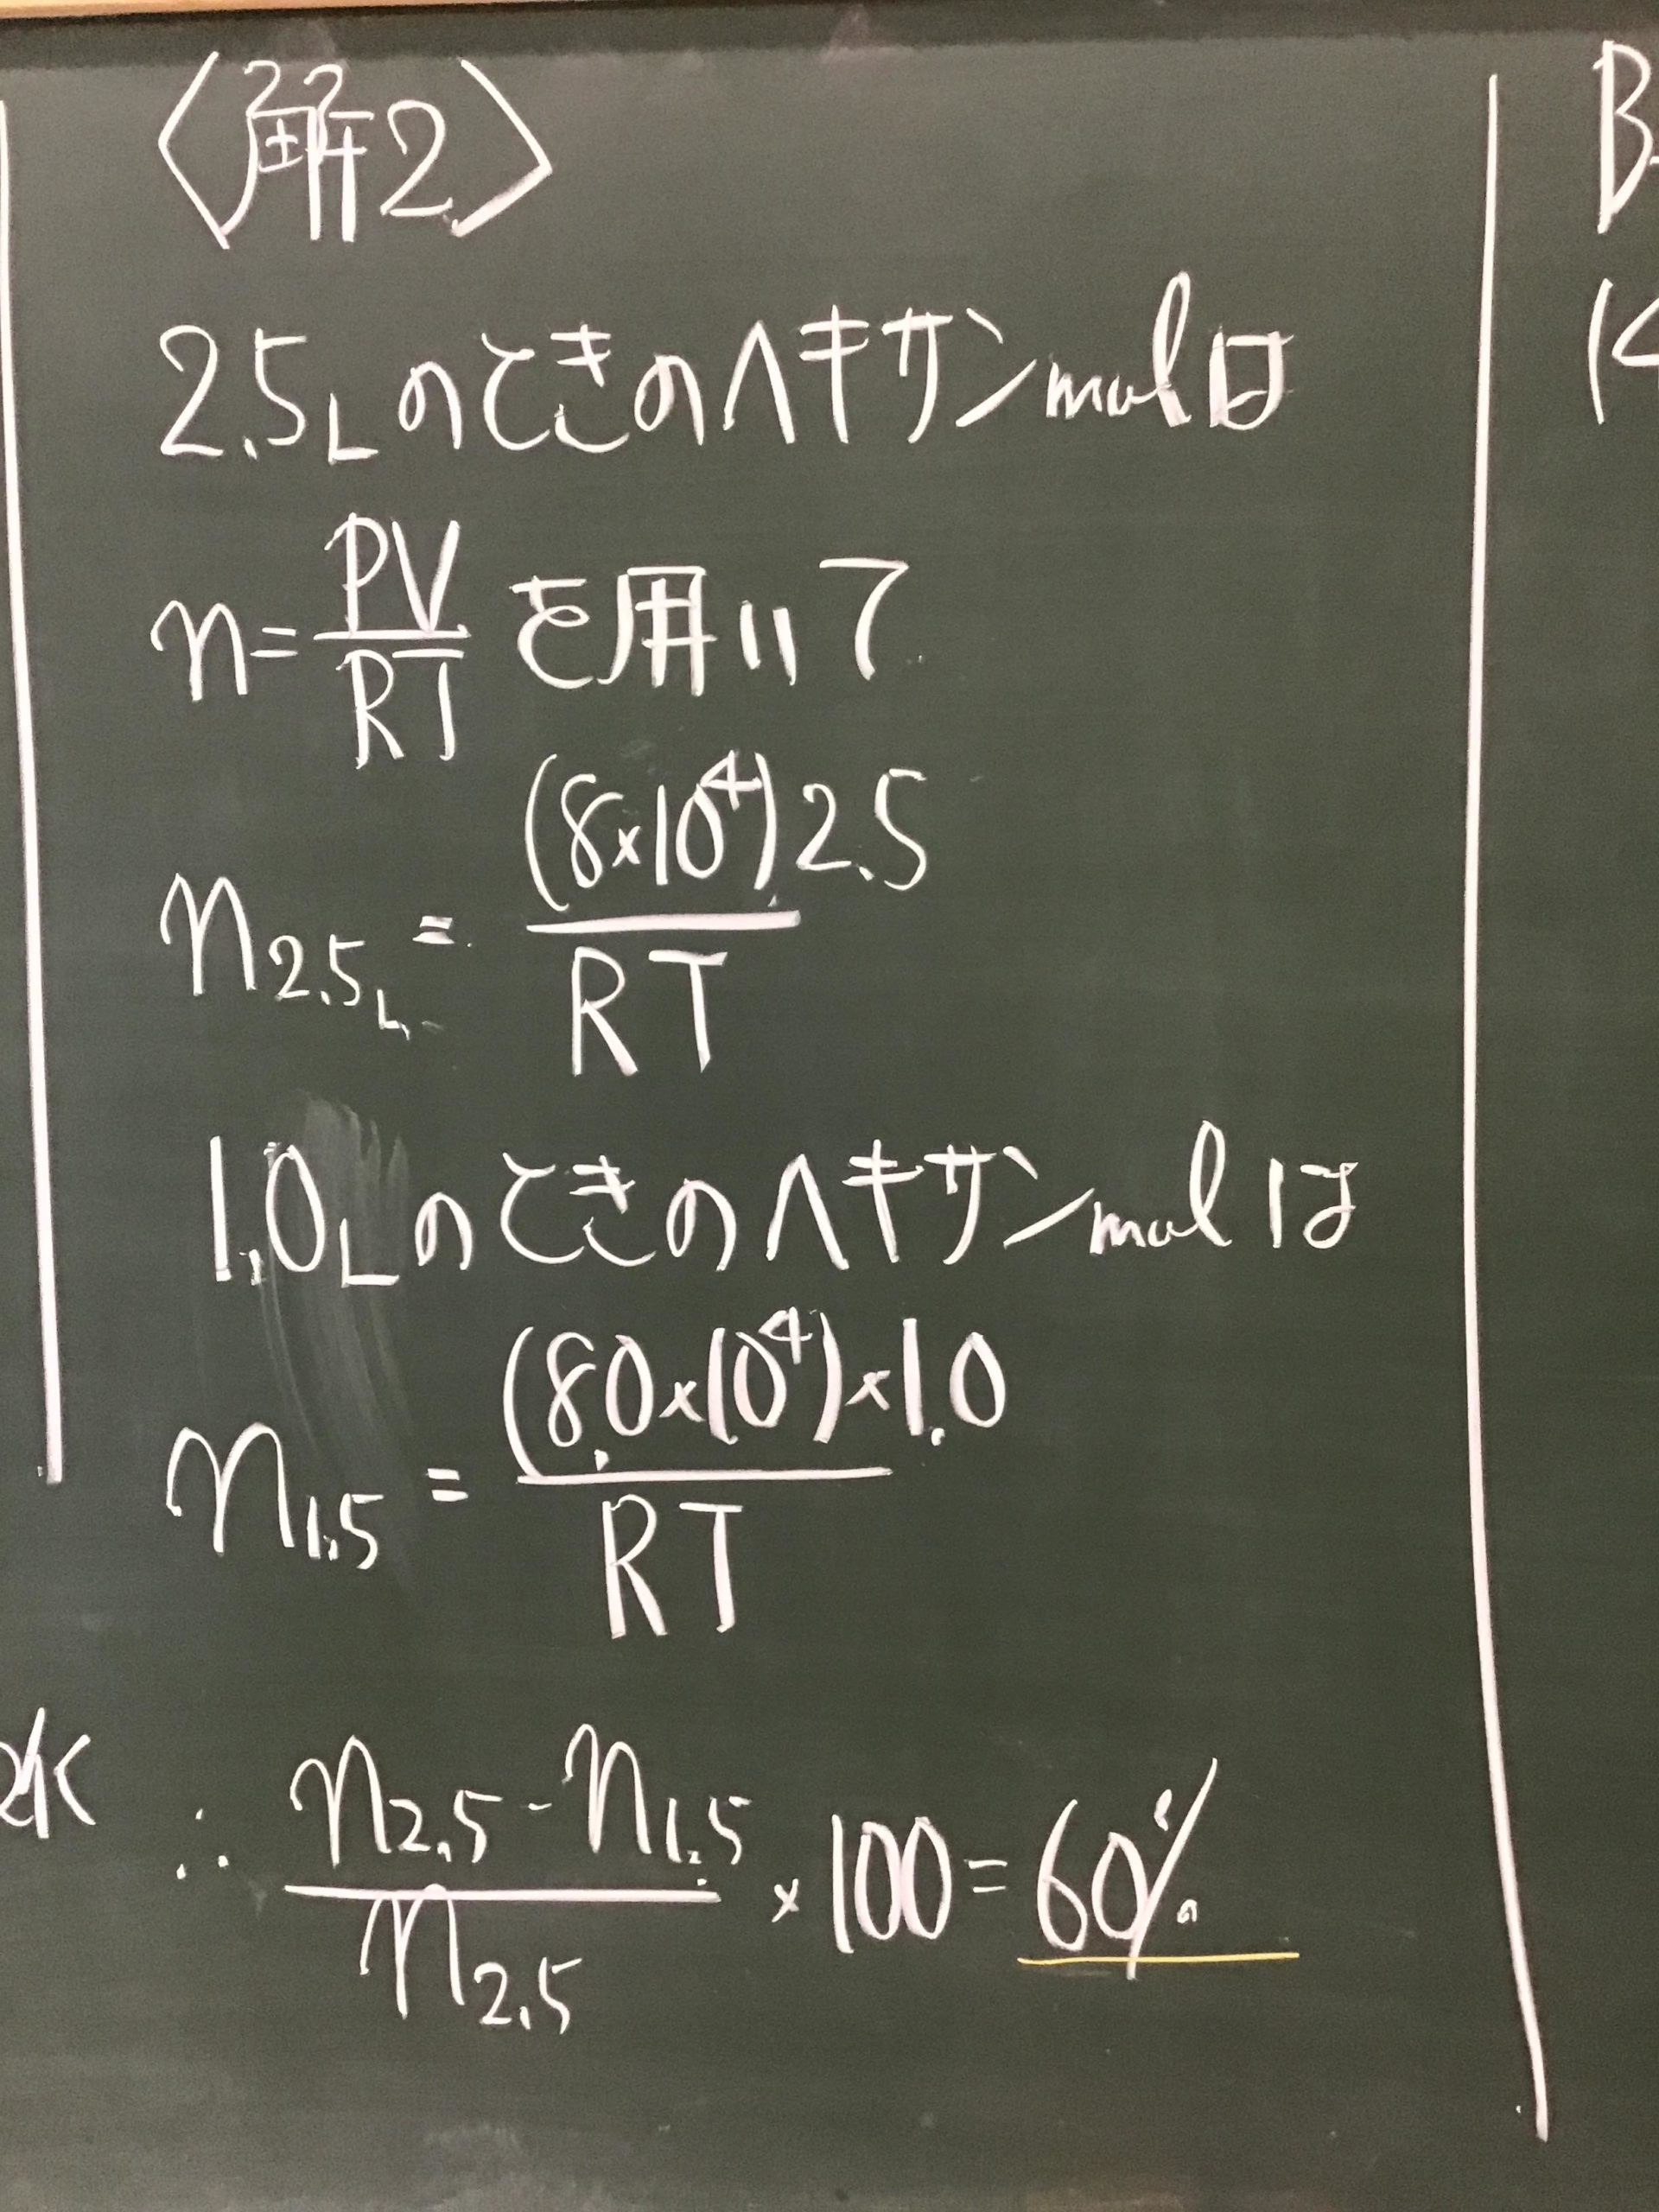 〈解2〉
2.5Lのときのヘキサンmolは
n=PV/RT を用いて
n2.5L = (8×10⁴)2.5/RT
1.0Lのときのヘキサンmolは
n1.5 = (8.0×10⁴)×1.0/RT
∴ (n2.5-n1.5)/n2.5 ×100=60%
B